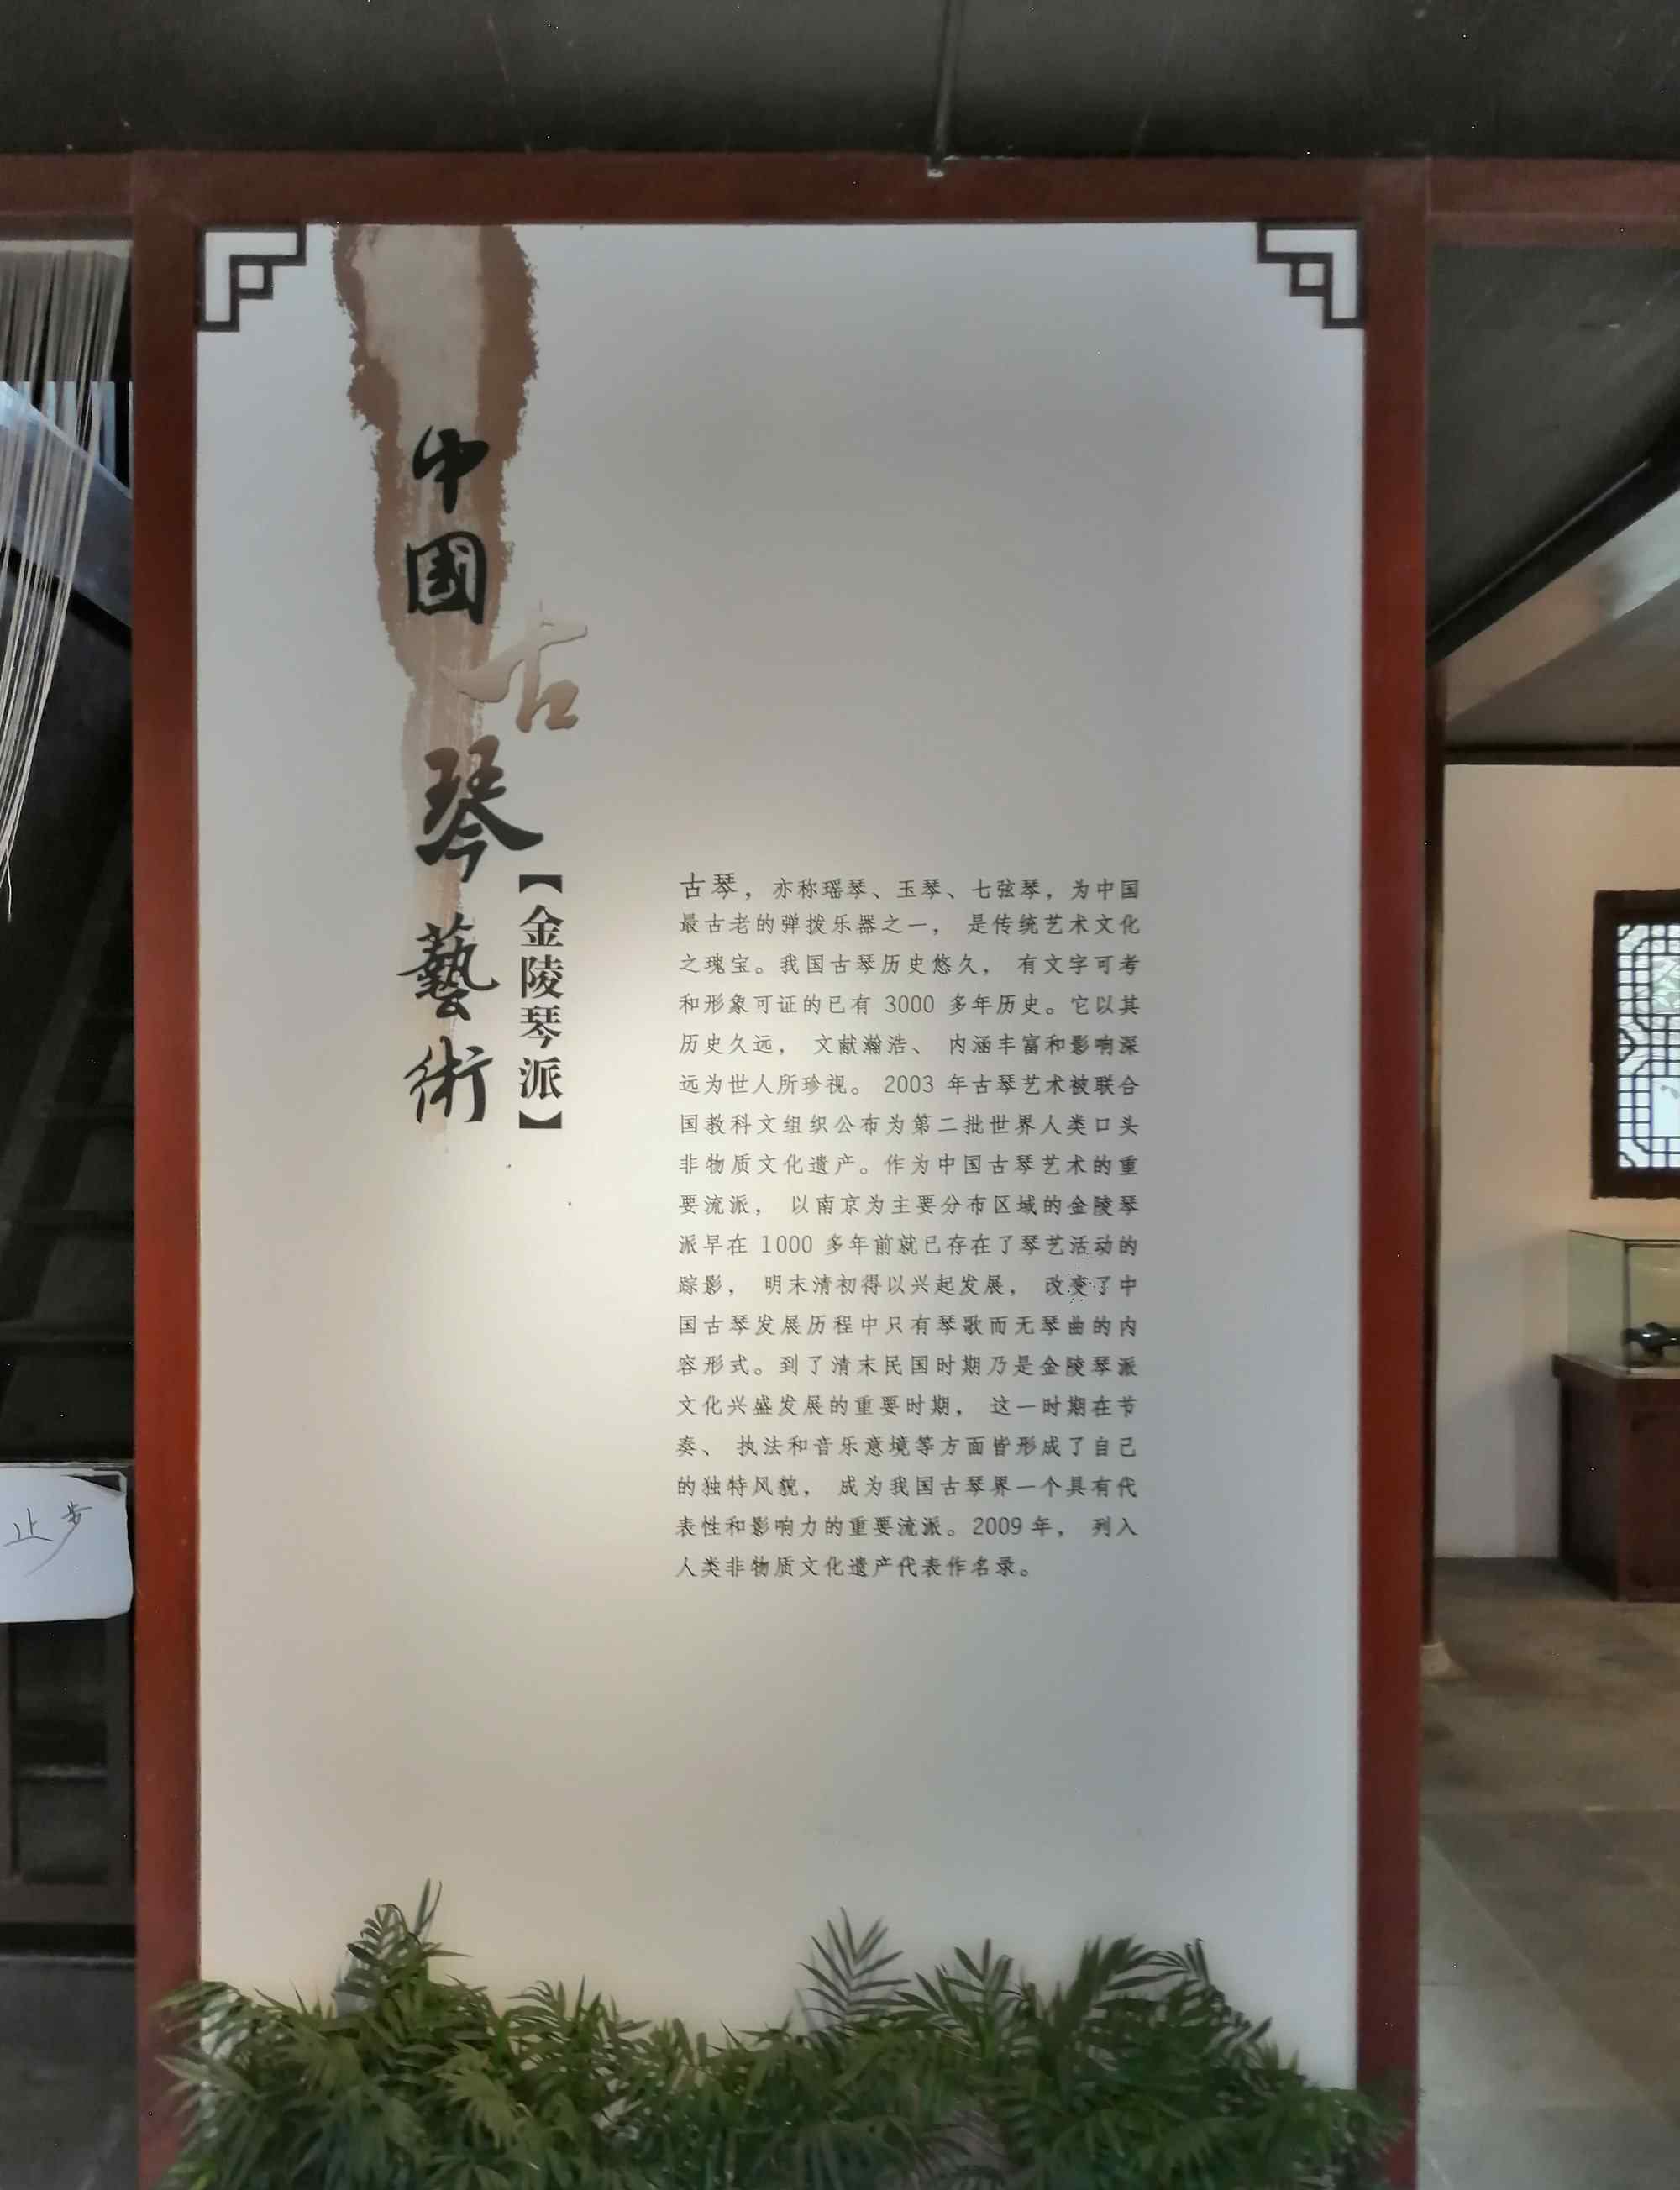 中國古琴藝術
【金陵琴派】
古琴，亦称瑶琴、玉琴、七弦琴，为中国
最古老的弹拨乐器之一， 是传统艺术文化
之瑰宝。我国古琴历史悠久， 有文字可考
和形象可证的已有 3000 多年历史。它以其
历史久远， 文献瀚浩、 内涵丰富和影响深
远为世人所珍视。 2003 年古琴艺术被联合
国教科文组织公布为第二批世界人类口头
非物质文化遗产。作为中国古琴艺术的重
要流派， 以南京为主要分布区域的金陵琴
派早在 1000 多年前就已存在了琴艺活动的
踪影， 明末清初得以兴起发展， 改变了中
国古琴发展历程中只有琴歌而无琴曲的内
容形式。到了清末民国时期乃是金陵琴派
文化兴盛发展的重要时期， 这一时期在节
奏、 执法和音乐意境等方面皆形成了自己
的独特风貌， 成为我国古琴界一个具有代
表性和影响力的重要流派。2009 年， 列入
人类非物质文化遗产代表作名录。
止步